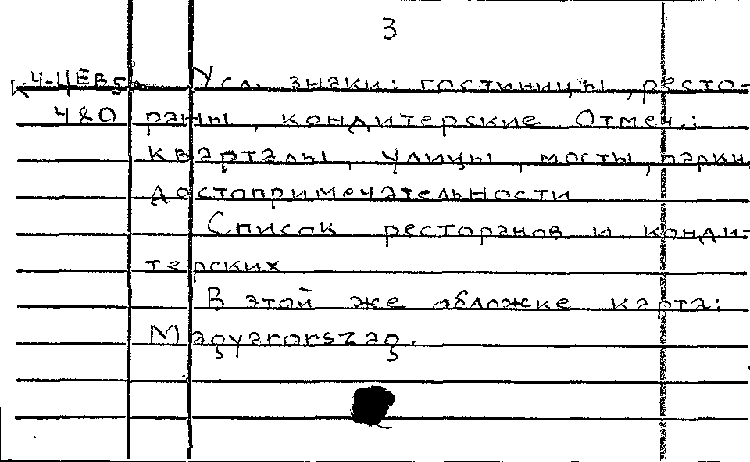 3
4-ЦЕВ5 Усл. знаки: гостиницы, ресто-
480 раны, кондитерские Отмеч.:
кварталы, улицы, мосты, парки,
достопримечательности
Список ресторанов и конди-
терских
В этой же обложке карта:
Magyarország.